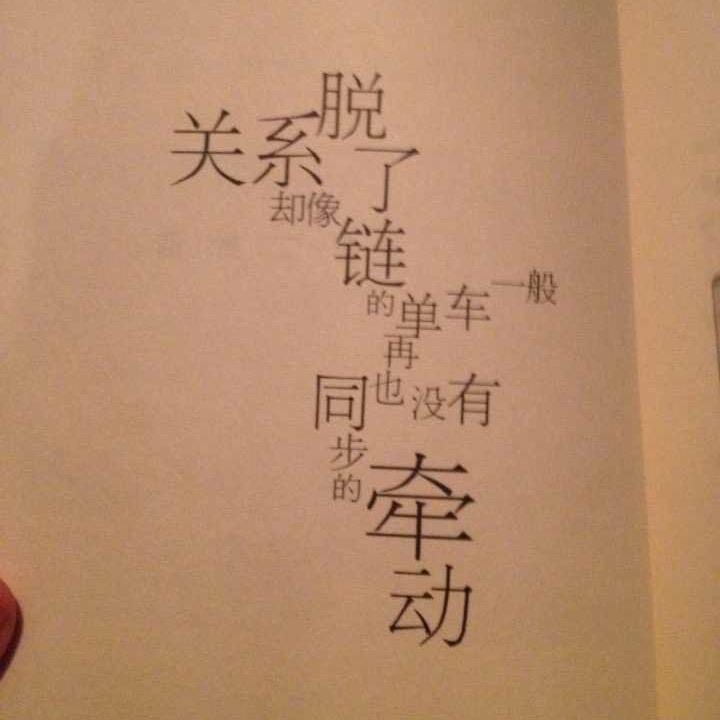 关系
却像
脱了
链
的单车一般
再
也没有
同
步的
牵
动